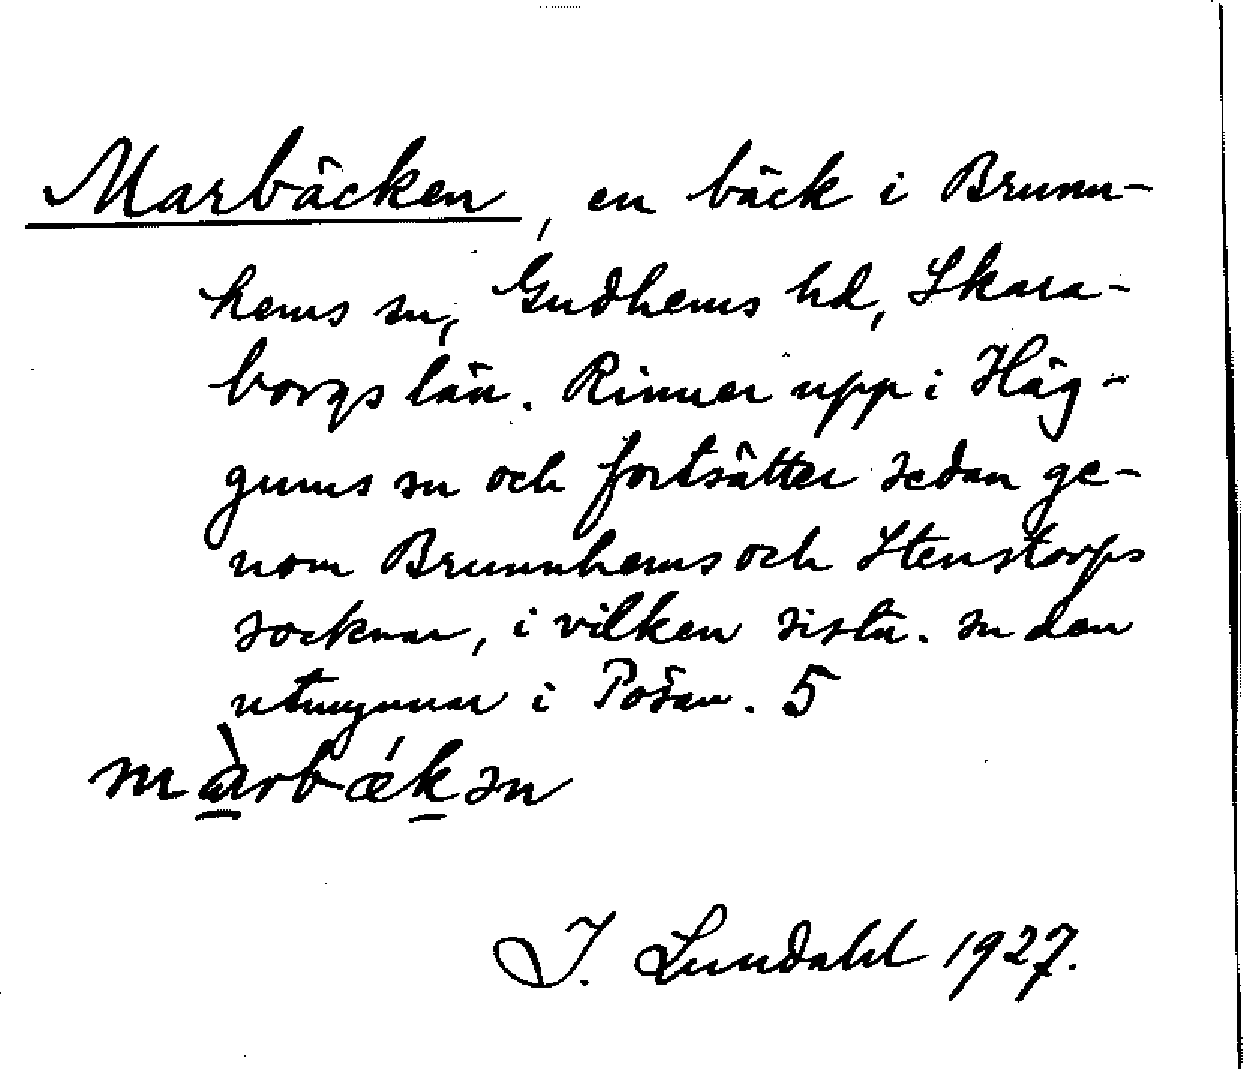 Marbäcken, en bäck i Brunn-
hems sn, Gudhems hd, Skara-
borgs län. Rinner upp i Häg-
gums sn och fortsätter sedan ge-
nom Brunnhems och Stenstorps
socknar, i vilken sistn. sn den
utmynnar i Pösan. 5
màrbǽkən
I. Lundahl 1927.